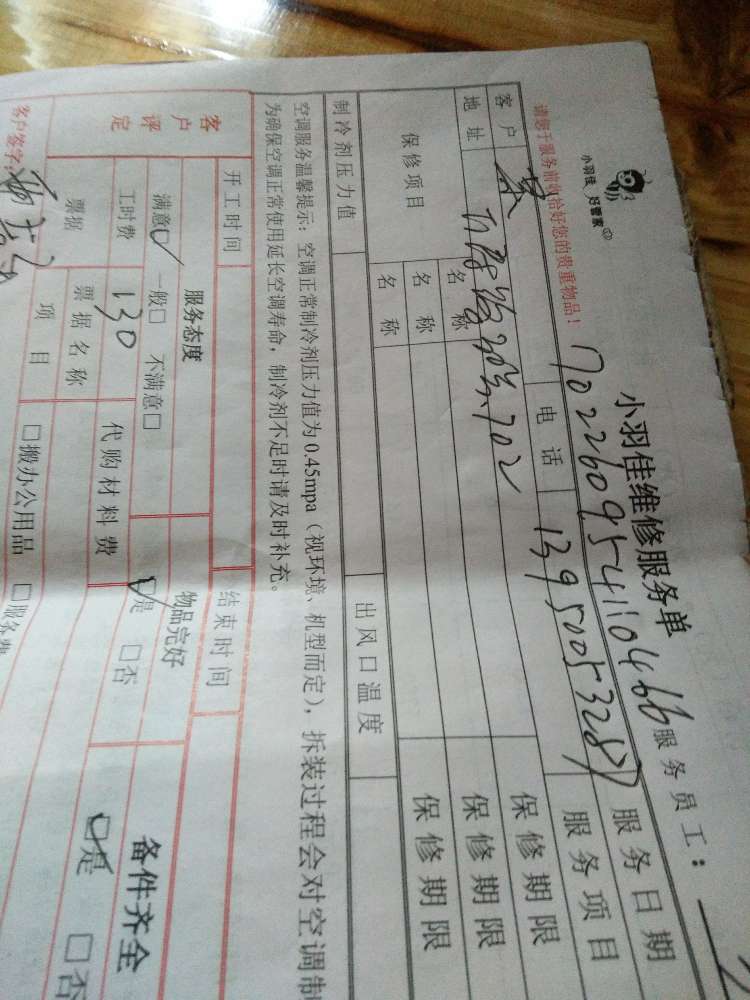 小羽佳 好管家
小羽佳维修服务单
请您于服务前收拾好您的贵重物品！
1702260954110466
服务员工：
客户
电话
13950053287
服务日期
地址
702
服务项目
保修项目
名称
保修期限
名称
保修期限
名称
保修期限
制冷剂压力值
出风口温度
空调服务温馨提示：空调正常制冷剂压力值为0.45mpa（视环境、机型而定），拆装过程会对空调制
为确保空调正常使用延长空调寿命，制冷剂不足时请及时补充。
客户评定
开工时间
结束时间
服务态度
物品完好
备件齐全
满意□ 一般□ 不满意□
□是 □否
□是 □否
工时费
130
代购材料费
票据
票据名称
项目
□搬办公用品 □服务费
客户签字：